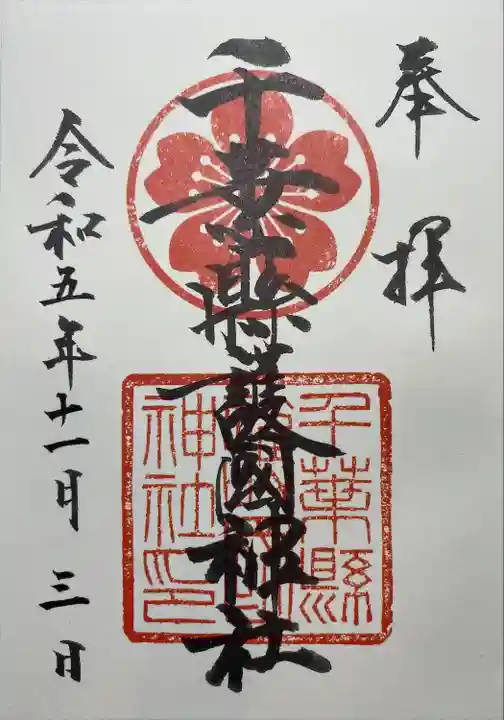 奉拝
千葉縣護國神社
千葉縣
神社印
令和五年十一月三日